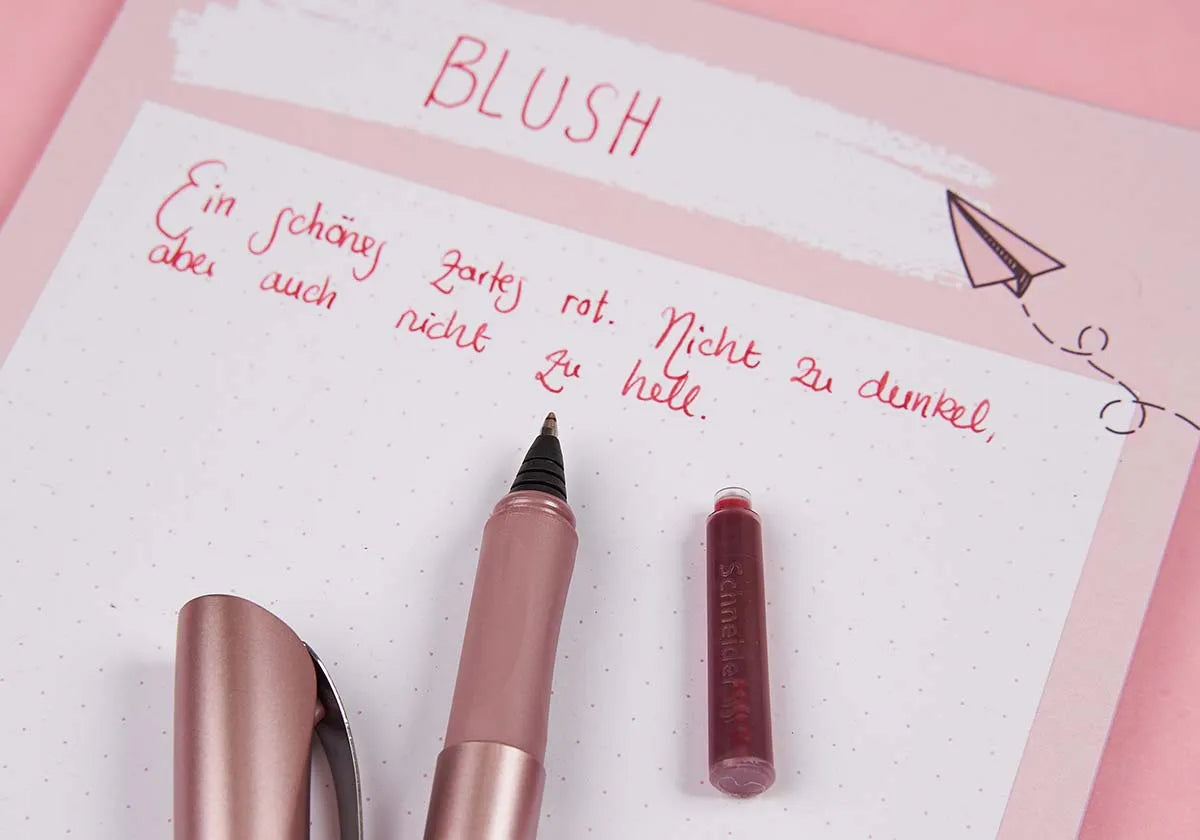 BLUSH
Ein schönes zartes rot. Nicht zu dunkel,
aber auch nicht zu hell.
Schneider